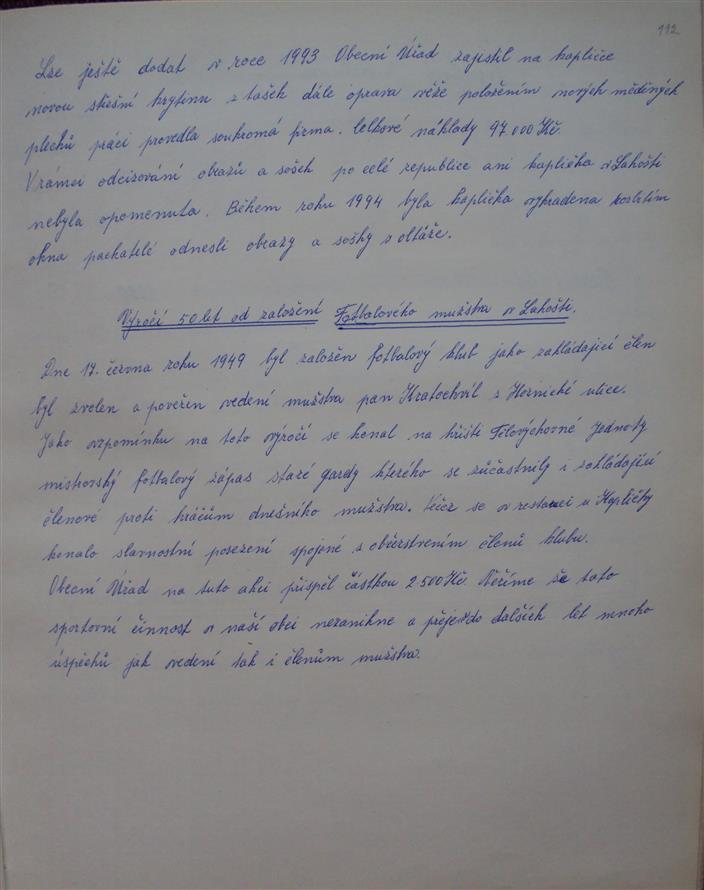 112
Lze ještě dodat v roce 1993 Obecní Úřad zajistil na kapličce
novou střešní krytinu z tašek dále oprava věže položením nových měděných
plechů práci provedla soukromá firma. Celkové náklady 97.000 Kč.
V rámci odcizování obrazů a sošek po celé republice ani kaplička v Lahošti
nebyla opomenuta. Během roku 1994 byla kaplička vykradena rozbitím
okna pachatelé odnesli obrazy a sošky s oltáře.
Výročí 50 let od založení Fotbalového mužstva v Lahošti.
Dne 17. června roku 1949 byl založen fotbalový klub jako zakládající člen
byl zvolen a pověřen vedení mužstva pan Kratochvíl z Hornické ulice.
Jako vzpomínku na toto výročí se konal na hřišti Tělovýchovné Jednoty
mistrovský fotbalový zápas staré gardy kterého se zúčastnily i zakládající
členové proti hráčům dnešního mužstva. Večer se v restauraci u Kapličky
konalo slavnostní posezení spojené s občerstvením členů klubu.
Obecní Úřad na tuto akci přispěl částkou 2.500 Kč. Věříme že tato
sportovní činnost v naší obci nezanikne a přeje do dalších let mnoho
úspěchů jak vedení tak i členům mužstva.